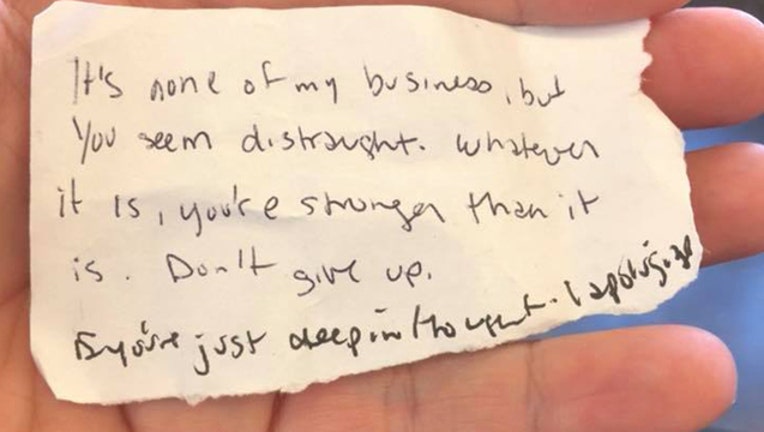 It's none of my business, but
you seem distraught. whatever
it is, you're stronger than it
is. Don't give up.
If you're just deep in thought. I apologize